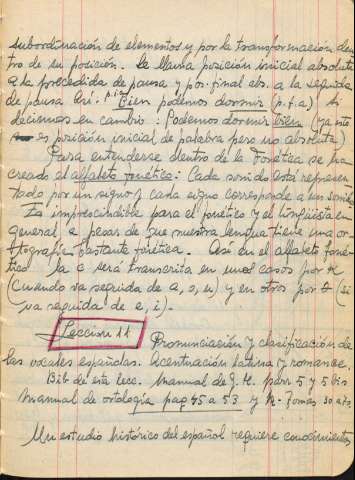 subordinación de elementos y por la transformación den
tro de su posición. Se llama posición inicial absoluta
a la precedida de pausa y pos. final abs. a la seguida
de pausa Así: Bien podemos dormir (p.f.a) Si
decimos en cambio: Podemos dormir bien (ya no
es posición inicial de palabra pero no absoluta)
Para entenderse dentro de la Fonética se ha
creado el alfabeto fonético: Cada sonido está represen
tado por un signo y cada signo corresponde a un sonido
Es imprescindible para el fonético y el lingüista en
general a pesar de que nuestra lengua tiene una or-
tografía bastante fonética. Así en el alfabeto foné-
tico la c será transcrita en unos casos por k
(cuando va seguida de a, o, u) y en otros por θ (si
va seguida de e, i).
Lección 11 Pronunciación y clasificación de
las vocales españolas. Acentuación latina y romance.
Bib de esta lecc. Manual de g. h. parr 5 y 6 bis
Manual de ortología pag 45 a 53 y N. Tomás
Un estudio histórico del español requiere conocimientos